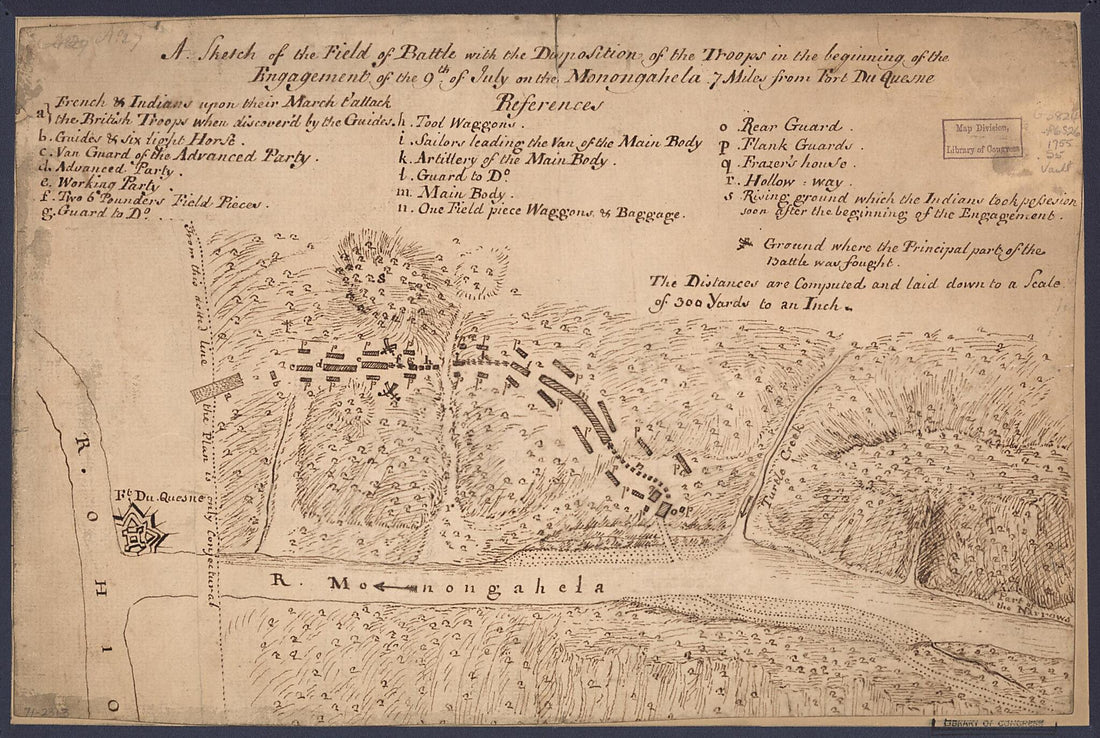 A Sketch of the Field of Battle with the Disposition of the Troops in the beginning of the
Engagement of the 9th of July on the Monongahela 7 Miles from Fort Du Quesne
References
a} French & Indians upon their March t'attack
the British Troops when discover'd by the Guides.
b. Guides & six light Horse.
c. Van Guard of the Advanced Party.
d. Advanced Party.
e. Working Party.
f. Two 6 Pounders Field Pieces.
g. Guard to Do.
h. Tool Waggons.
i. Sailors leading the Van of the Main Body
k. Artillery of the Main Body.
l. Guard to Do.
m. Main Body.
n. One Field piece Waggons & Baggage.
o Rear Guard.
p Flank Guards.
q. Frazer's house.
r. Hollow: way.
s Rising ground which the Indians took possesion
soon after the beginning of the Engagement.
Ground where the Principal part of the
Battle was fought.
The Distances are Computed and laid down to a Scale
of 300 Yards to an Inch.
Map Division,
Library of Congress
1755
Vault
From this dotted line the Plan is only Conjectural
Ft Du Quesne
R. OHIO
R. Monongahela
Turtle Creek
Part of
the Narrows
LIBRARY OF CONGRESS